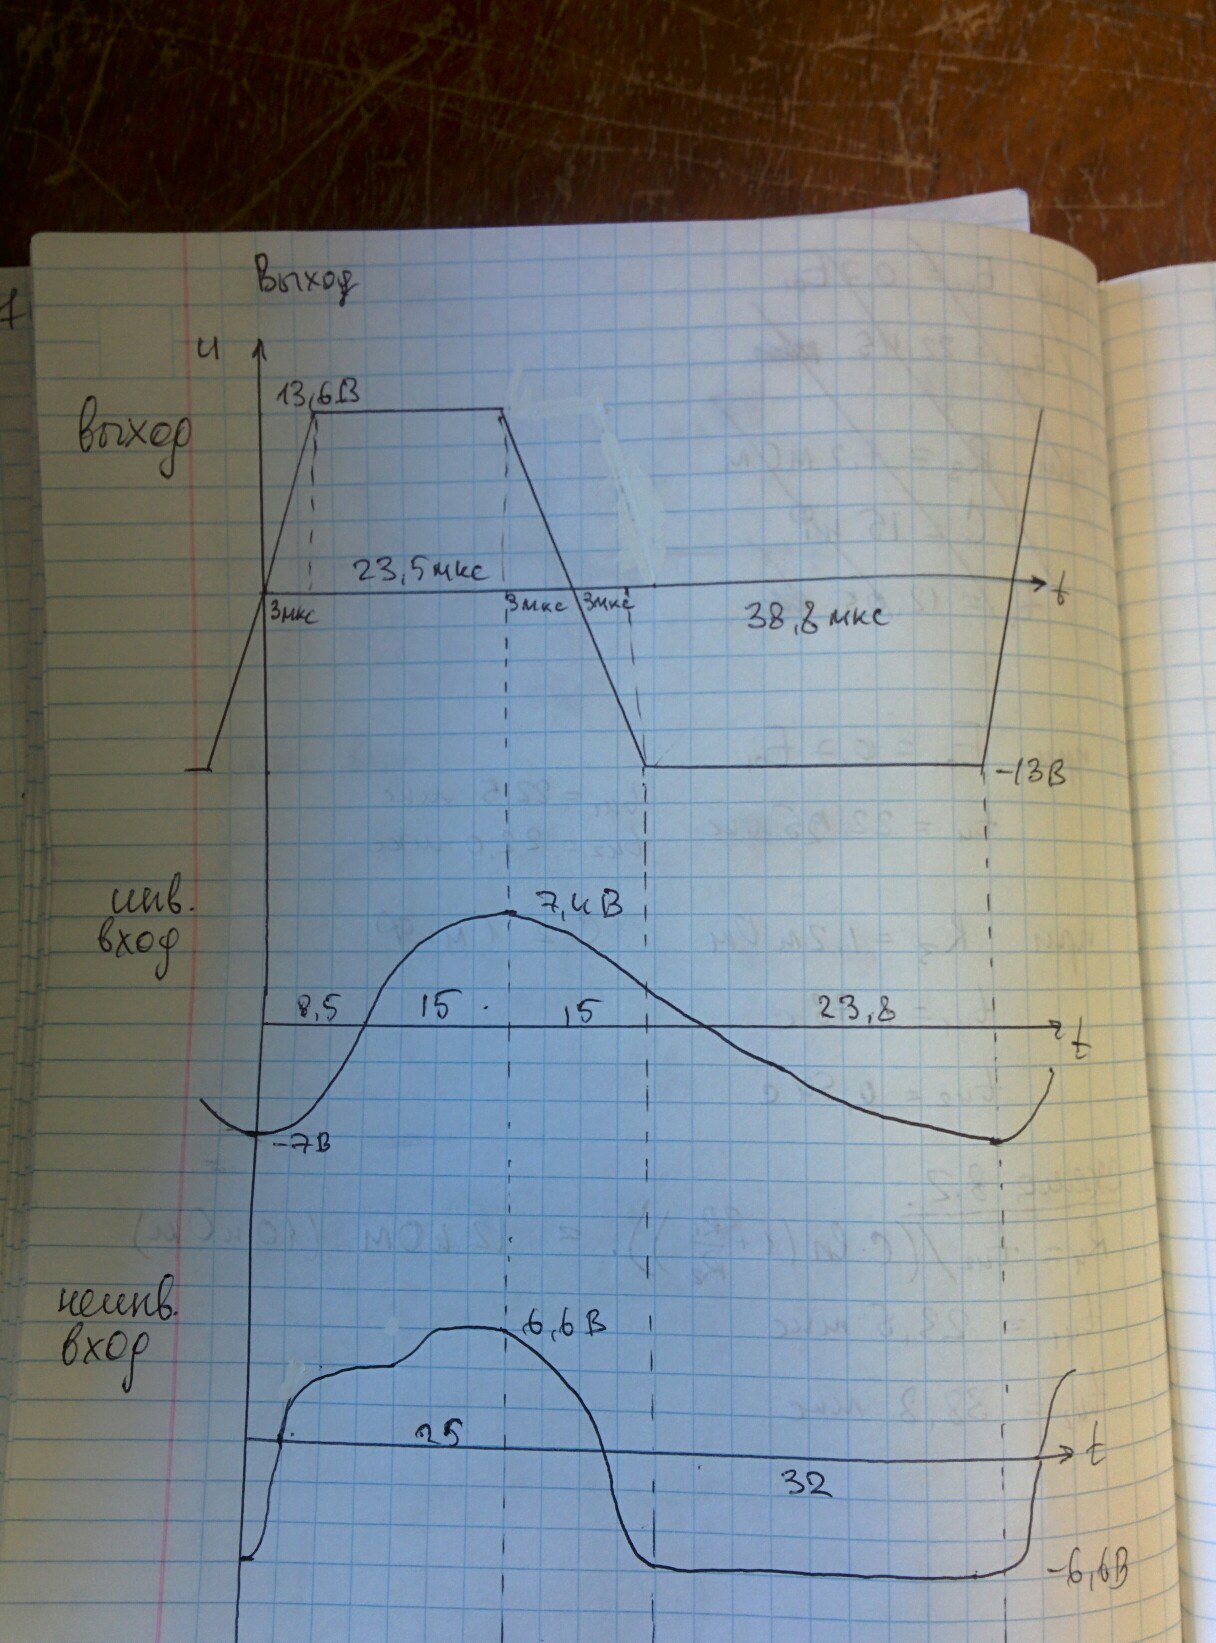 Выход
u
13,6В
выход
23,5мкс
3мкс 3мкс 3мкс
t
38,8мкс
-13В
инв.
вход
7,4В
8,5 15 15 23,8
t
-7В
неинв.
вход
6,6В
25
t
32
-6,6В